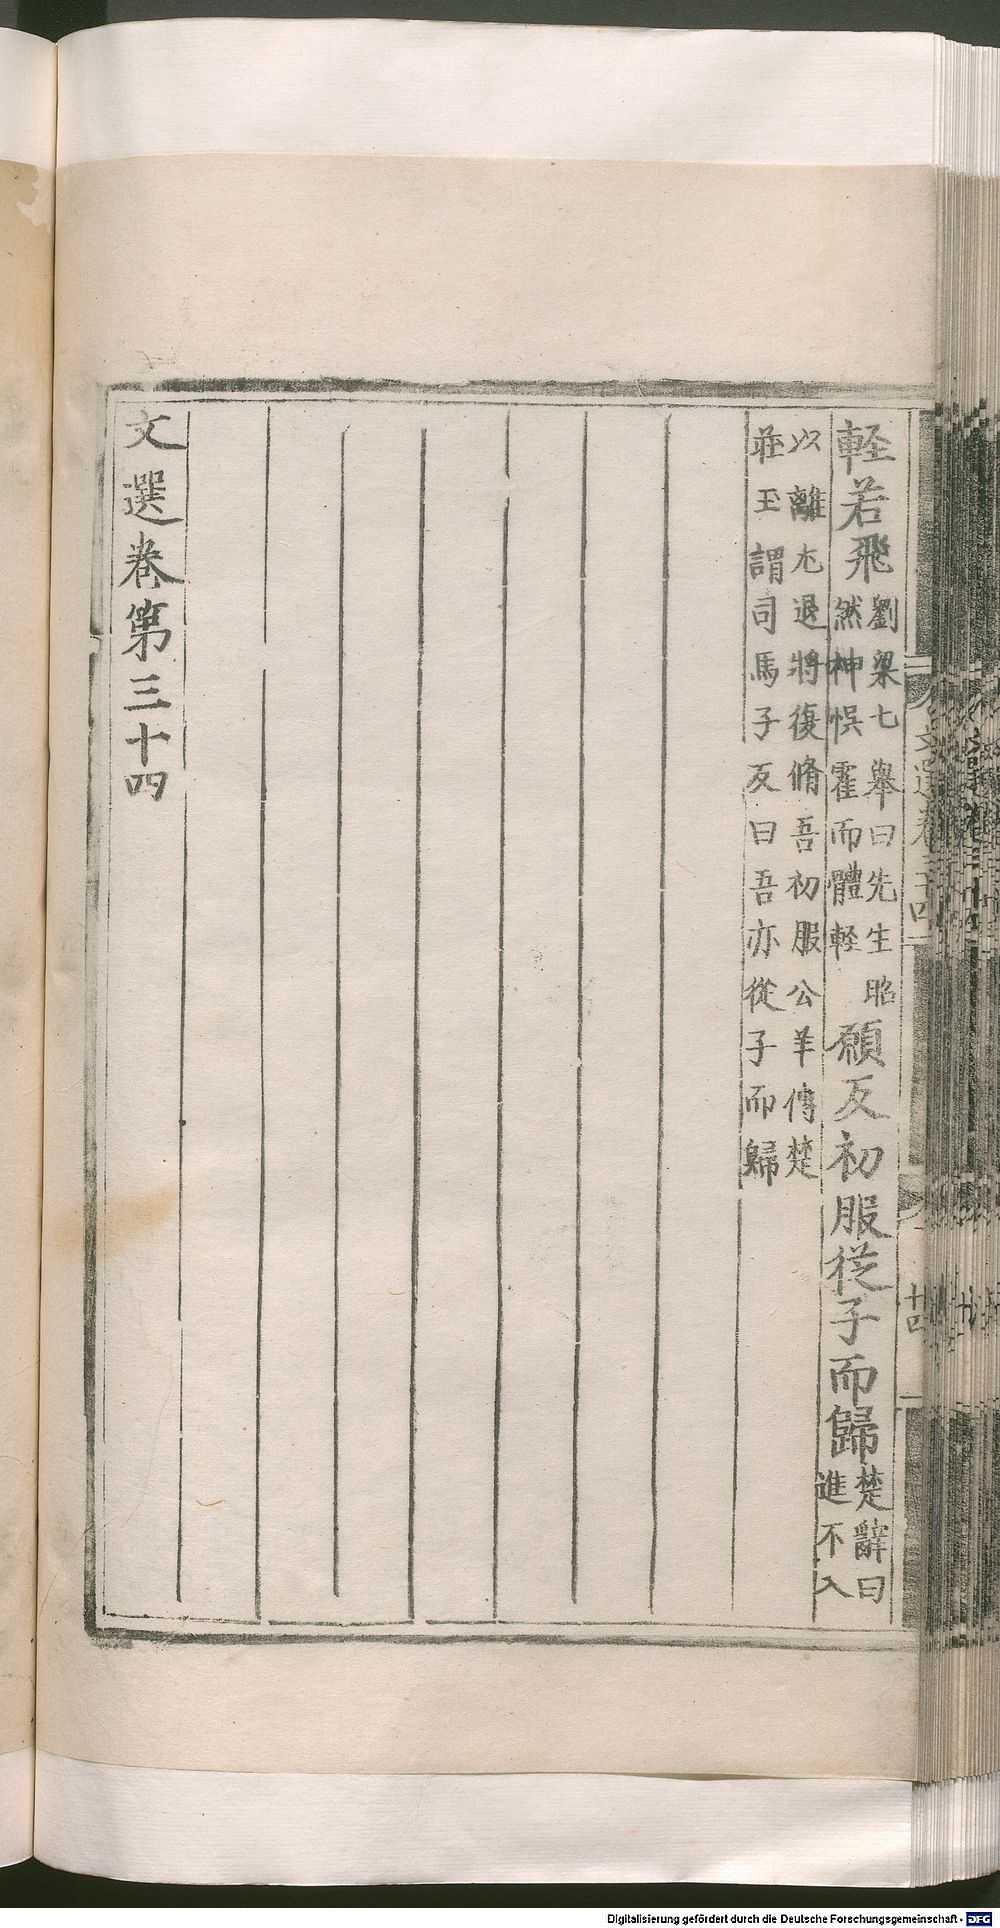 文選卷三十四
十四
軽若飛
劉梁七舉曰先生昭
然神悮霍而體軽
願反初服從子而歸
楚辭曰
進不入
以離尤退將復脩吾初服公羊傳楚
莊王謂司馬子反曰吾亦從子而歸
文選卷第三十四
Digitalisierung gefördert durch die Deutsche Forschungsgemeinschaft - DFG